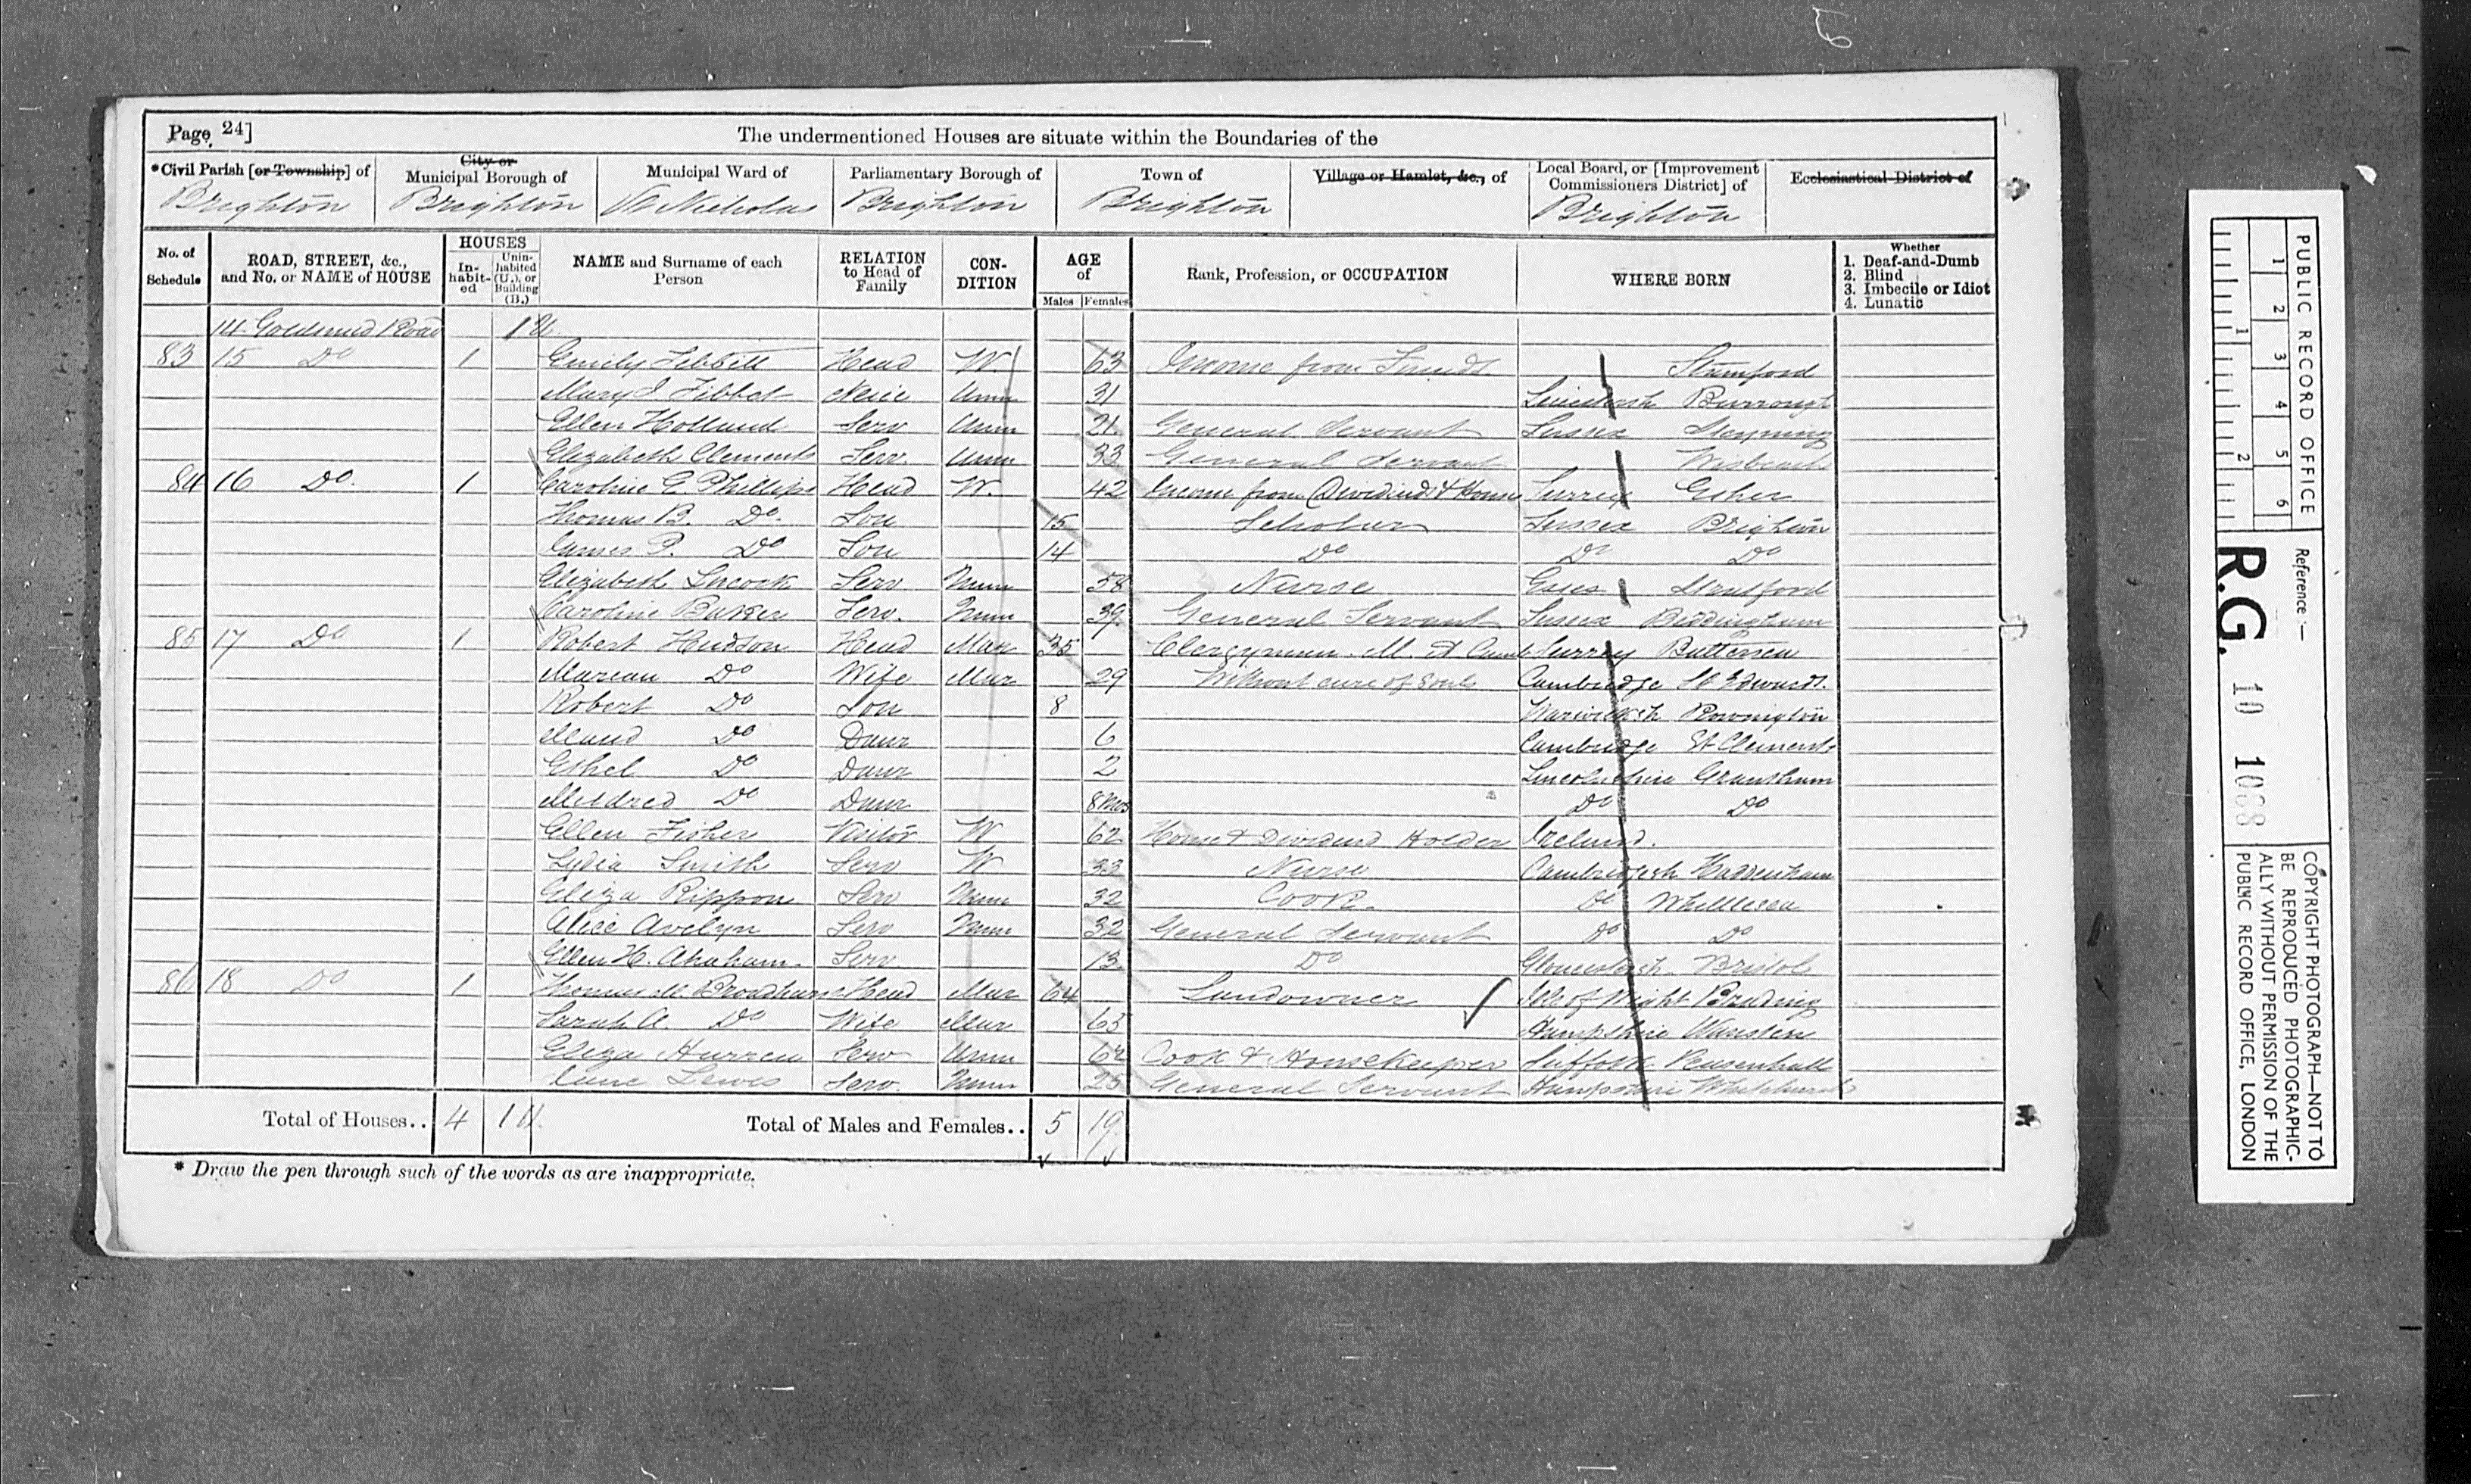 Page 24]
The undermentioned Houses are situate within the Boundaries of the
*Civil Parish [or Township] of
City or Municipal Borough of
Municipal Ward of
Parliamentary Borough of
Town of
Village or Hamlet, &c., of
Local Board, or [Improvement Commissioners District] of
Ecclesiastical District of
Brighton Brighton St Nicholas Brighton Brighton Brighton
No. of Schedule
ROAD, STREET, &c., and No. or NAME of HOUSE
HOUSES
In-habit-ed
Unin-habited (U.), or Building (B.)
NAME and Surname of each Person
RELATION to Head of Family
CON-DITION
AGE of
Males Females
Rank, Profession, or OCCUPATION
WHERE BORN
Whether
1. Deaf-and-Dumb
2. Blind
3. Imbecile or Idiot
4. Lunatic
14 Goldsmid Road 1 U
83 15 Do 1 Emily Head W. 63 Income from Funds Stamford
Mary Neice Unm 31
Ellen Holland Serv Unm 21 General Servant Sussex Steyning
Elizabeth Clements Serv. Unm 33 General Servant Wisbeach
84 16 Do. 1 Caroline E. Phillips Head W. 42 Income from Dividend & House Surrey Esher
Thomas B. Do. Son 15 Scholar Sussex Brighton
James P. Do Son 14 Do Do Do
Elizabeth Serv Unm 58 Nurse Essex Stratford
Caroline Baker Serv. Unm 39 General Servant Sussex
85 17 Do 1 Robert Hudson Head Mar 35 Clergyman. M. A Camb Surrey Battersea
Do Wife Mar 29 Without cure of Souls Cambridge St Edwards.
Robert Do Son 8 Warwicksh Rowington
Maud Do Daur 6 Cambridge St Clements
Ethel Do Daur 2 Lincolnshire Grantham
Mildred Do Daur 8 Mos Do Do
Ellen Fisher Visitor W 62 House & Dividend Holder Ireland.
Lydia Smith Serv W 33 Nurse Cambridgesh Haddenham
Eliza Rippon Serv Unm 32 Cook Do Whittlesea
Alice Avelyn Serv Unm 32 General Servant Do Do
Ellen H. Abraham. Serv 13 Do Gloucestersh. Bristol
86 18 Do 1 Thomas M. Head Mar 64 Landowner Isle of Wight Brading
Sarah A Do Wife Mar 63 Hampshire
Eliza Hurren Serv Unm Cook & Housekeeper Suffolk Peasenhall
Jane Lewis Serv. Unm 25 General Servant Hampshire Whitchurch
Total of Houses.. 4 1 U. Total of Males and Females.. 5 19
* Draw the pen through such of the words as are inappropriate.
PUBLIC RECORD OFFICE
1 2 3 4 5 6
1 2
Reference:—
R.G. 10 1088
COPYRIGHT PHOTOGRAPH—NOT TO
BE REPRODUCED PHOTOGRAPHIC-
ALLY WITHOUT PERMISSION OF THE
PUBLIC RECORD OFFICE, LONDON